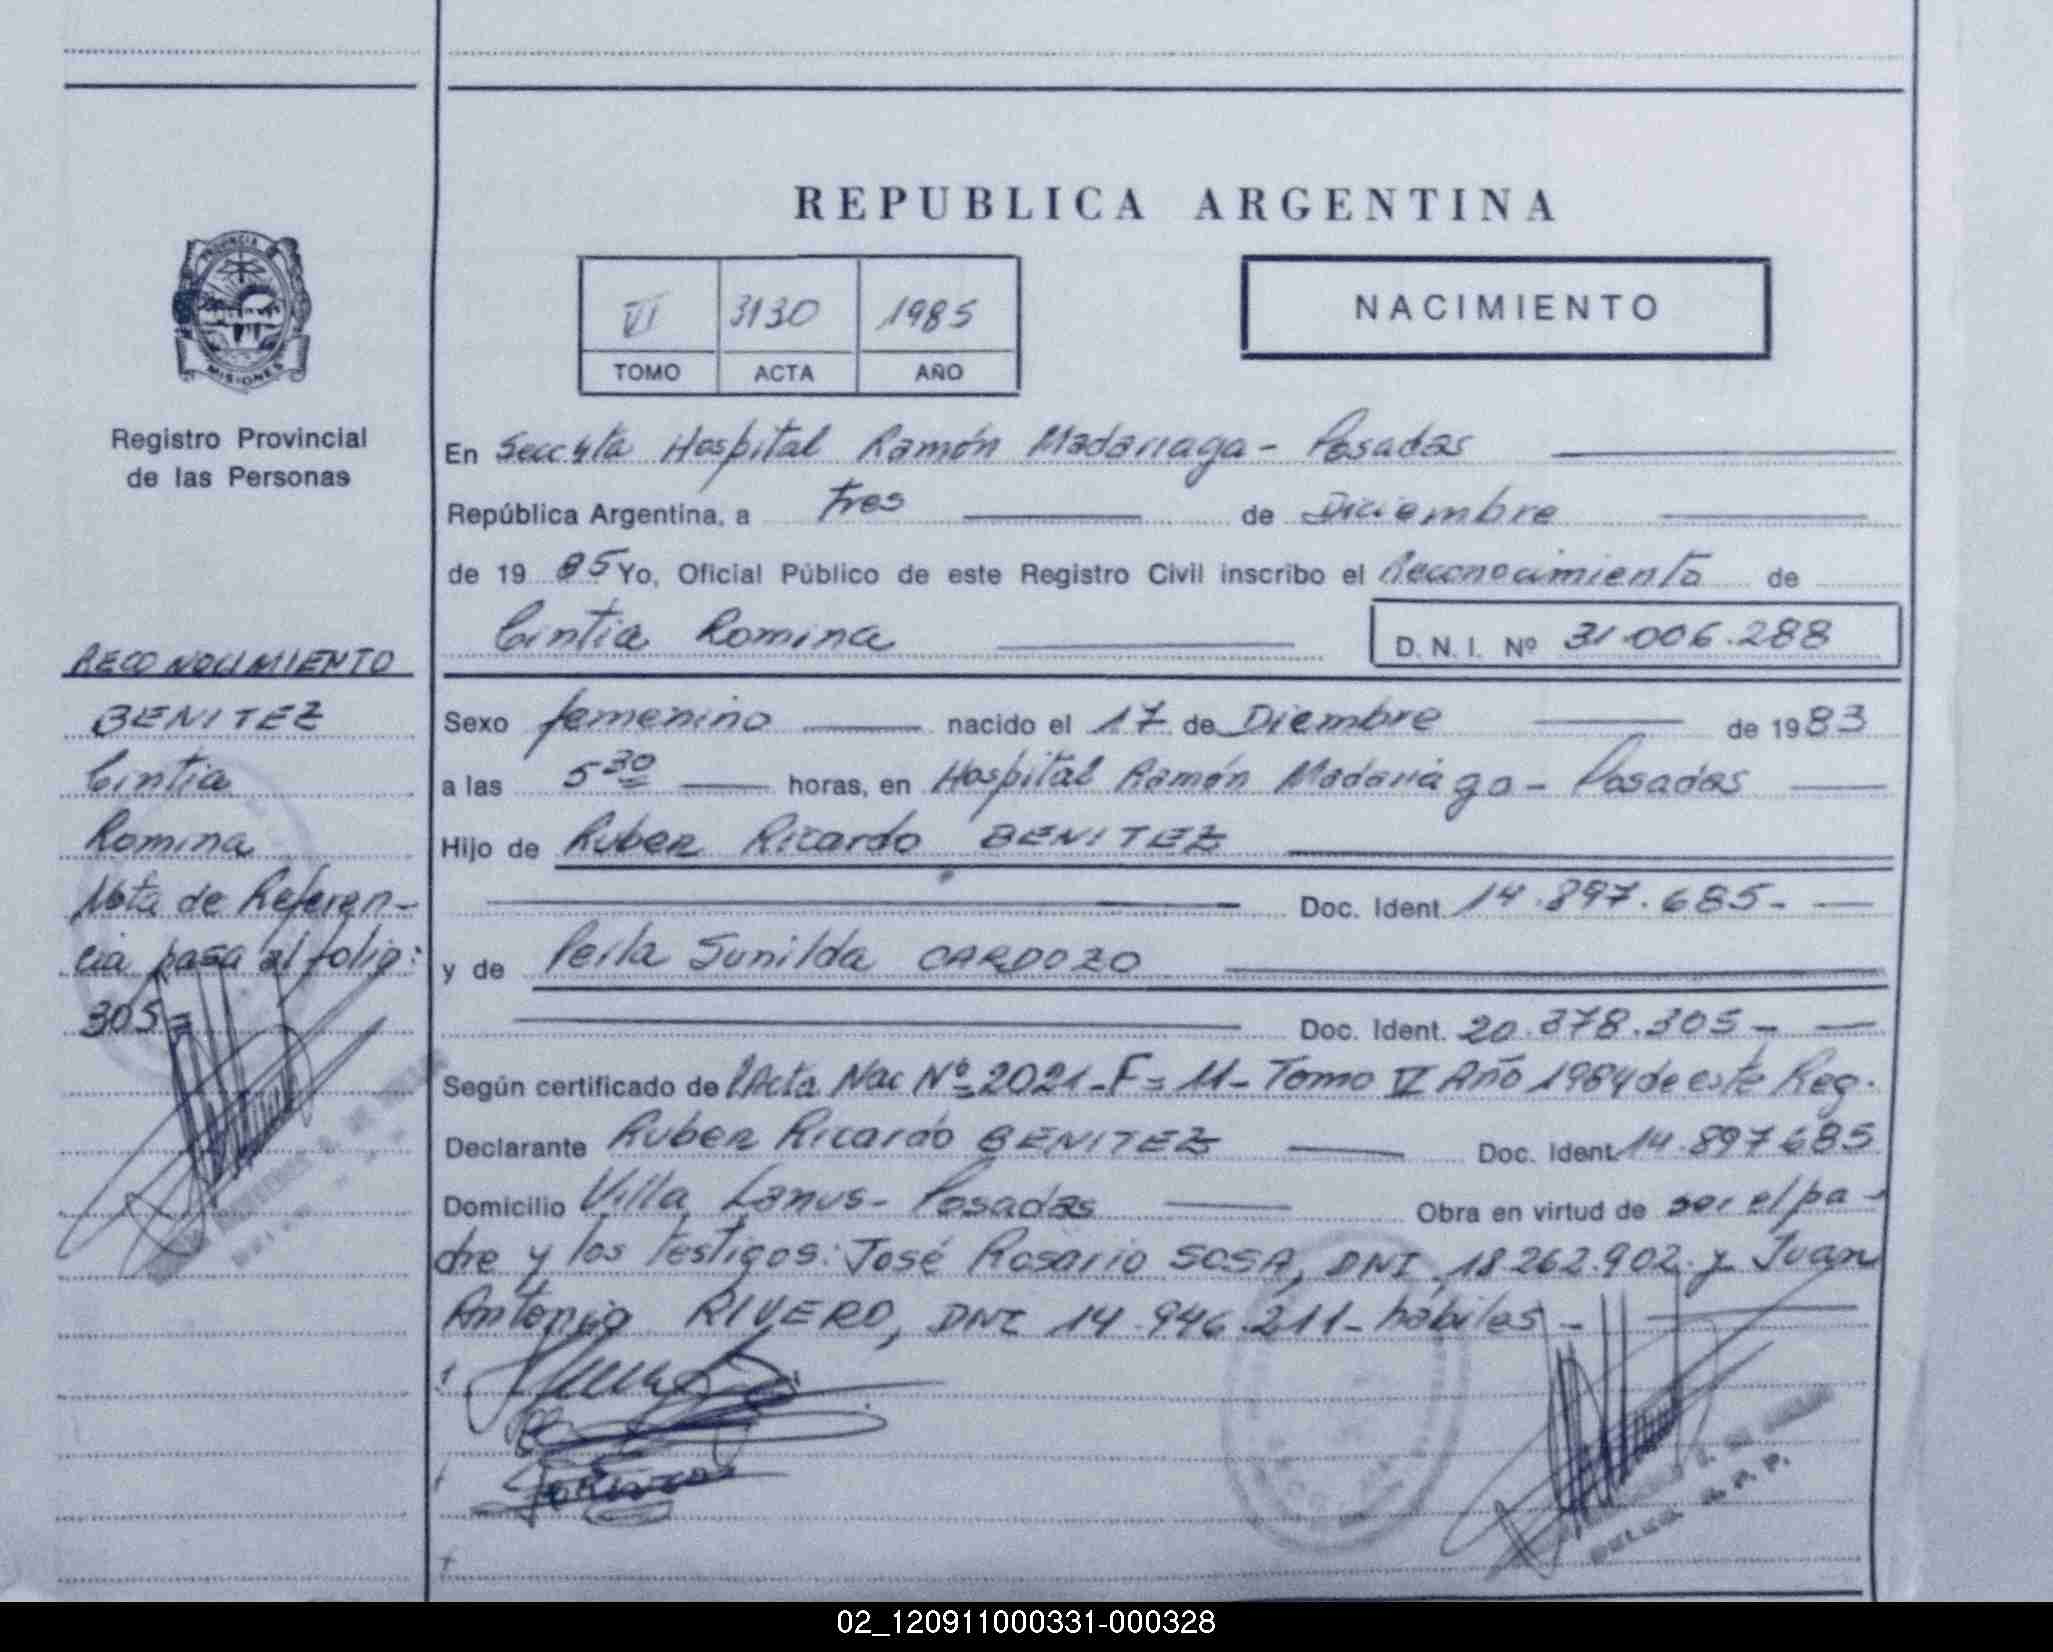 REPUBLICA ARGENTINA
PROVINCIA DE
MISIONES
Registro Provincial
de las Personas
VI 3130 1985
TOMO ACTA AÑO
NACIMIENTO
En Hospital Ramón Madariaga - Posadas
República Argentina, a tres de Diciembre
de 19 85 Yo, Oficial Público de este Registro Civil inscribo el Reconocimiento de
Cintia Romina D. N. I. Nº 31.006.288
RECONOCIMIENTO
BENITEZ
Cintia
Romina
Nota de Referen-
cia pasa al folio:
305=
Sexo femenino nacido el 17 de Diembre de 1983
a las 5 30 horas, en Hospital Ramón Madariaga - Posadas
Hijo de Ruben Ricardo BENITEZ
Doc. Ident. 14.897.685-
y de Perla Sunilda CARDOZO
Doc. Ident. 20.378.305-
Según certificado de Acta Nac Nº 2021-F=11- Tomo Año 1984 de este Reg.
Declarante Ruben Ricardo BENITEZ Doc. Ident. 14.897685
Domicilio Villa Lanus- Posadas Obra en virtud de ser el pa-
dre y los testigos: José Rosario SOSA, DNI 18.262.902 y Juan
Antonio RIVERO, DNI 14.946.211- habiles-
02_120911000331-000328